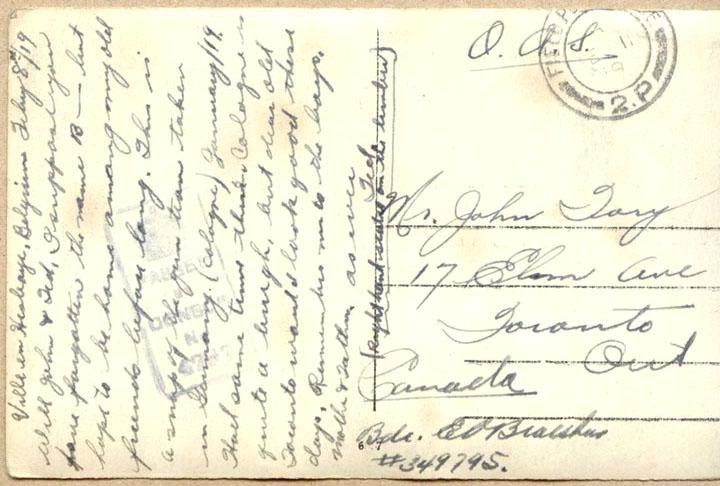 Ville en Hesbaye, Belgium Feby 8th/19
Well John & Ted, I suppose you
have forgotten the name B— but
hope to be home among my old
friends before long. This is
a snap of the gun team taken
in Germany (Cologne) January/19.
Had some time there. Cologne is
quite a burgh, but dear old
Toronto would look good these
days. Remember me to the boys.
Mother & Father. as ever
Ted.
(right hand seated on the limber)
O. A. S.
FIELD POST OFFICE
2.P
PASSED
CENSOR
Mr. John Tory
17 Elm Ave
Toronto
Ont
Canada
Bdr.
#349795.